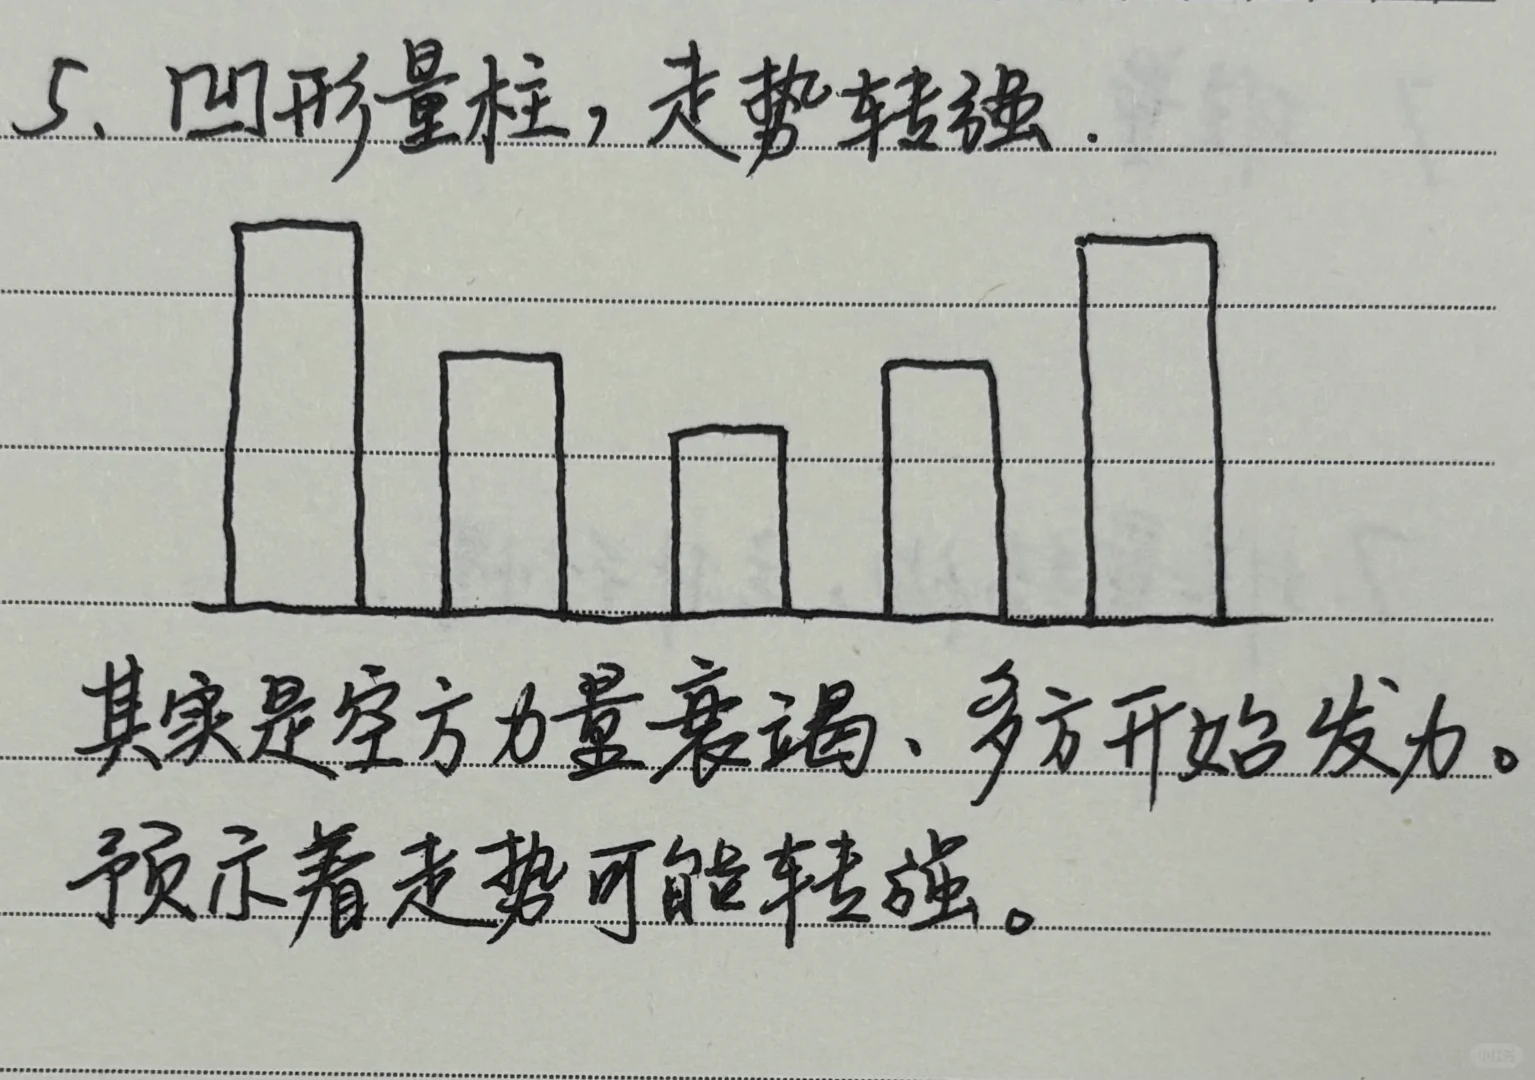 5、凹形量柱，走势转强.
其实是空方力量衰竭、多方开始发力。
预示着走势可能转强。
小红书